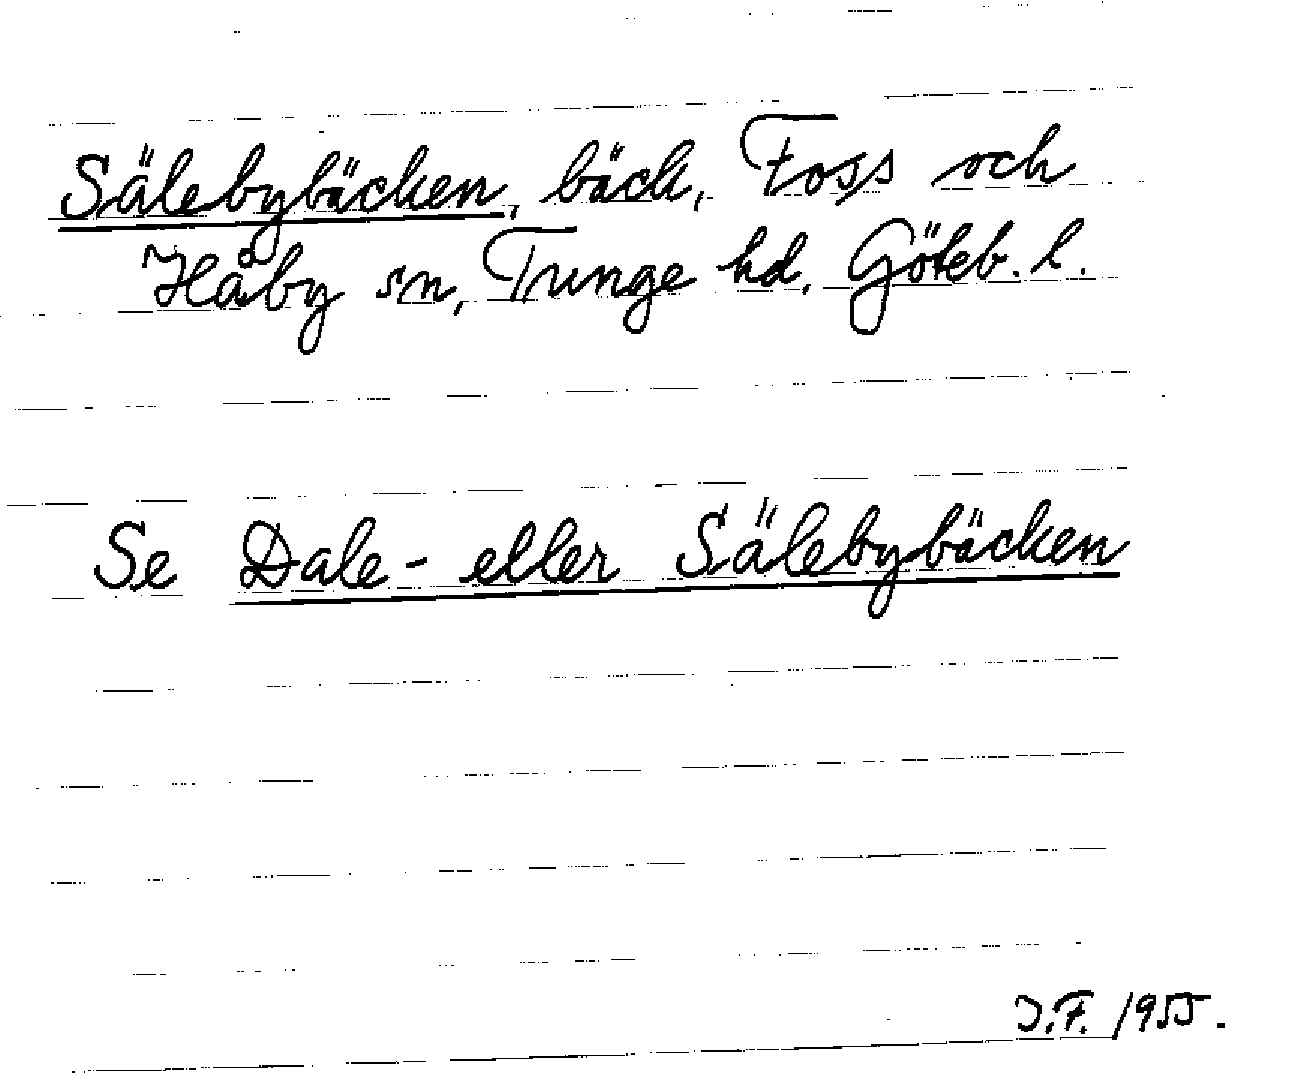 Sälebybäcken, bäck, Foss och
Håby sn, Tunge hd, Göteb. l.
Se Dale- eller Sälebybäcken
J.F. 1955.